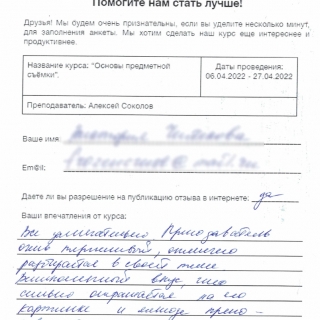 Помогите нам стать лучше!
Друзья! Мы будем очень признательны, если вы уделите несколько минут,
для заполнения анкеты. Мы хотим сделать наш курс еще интереснее и
продуктивнее.
Название курса: "Основы предметной
съёмки".
Даты проведения:
06.04.2022 - 27.04.2022
Преподаватель: Алексей Соколов
Ваше имя:
Em@il:
Даете ли вы разрешение на публикацию отзыва в интернете: да
Ваши впечатления от курса:
Все замечательно, Преподаватель
очень терпеливый, отлично
разбирается в своей теме
вкус, что
сильно отражается на его
картинках и